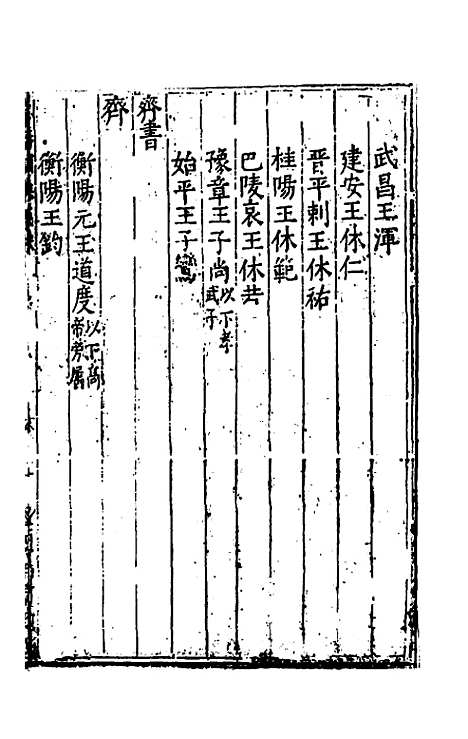 武昌王渾
建安王休仁
晋平剌王休祐
桂陽王休範
巴陵哀王休若
豫章王子尚以下孝武子
始平王子鸞
齊書
齊
衡陽元王道度以下高帝旁屬
衡陽王鈞